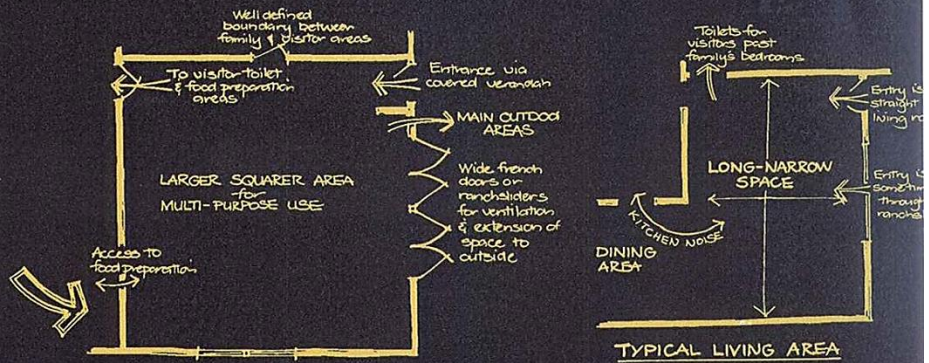 Well defined
boundary between
family & visitor areas
To visitor toilet
& food preparation
areas
Entrance via
covered verandah
MAIN OUTDOOR
AREAS
LARGER SQUARER AREA
for
MULTI-PURPOSE USE
Wide french
doors or
ranchsliders
for ventilation
& extension of
space to
outside
Access to
food preparation
Toilets for
visitors past
family's bedrooms
Entry is
straight
living ro
LONG-NARROW
SPACE
Entry is
sometim
through
ranchs
KITCHEN NOISE
DINING
AREA
TYPICAL LIVING AREA